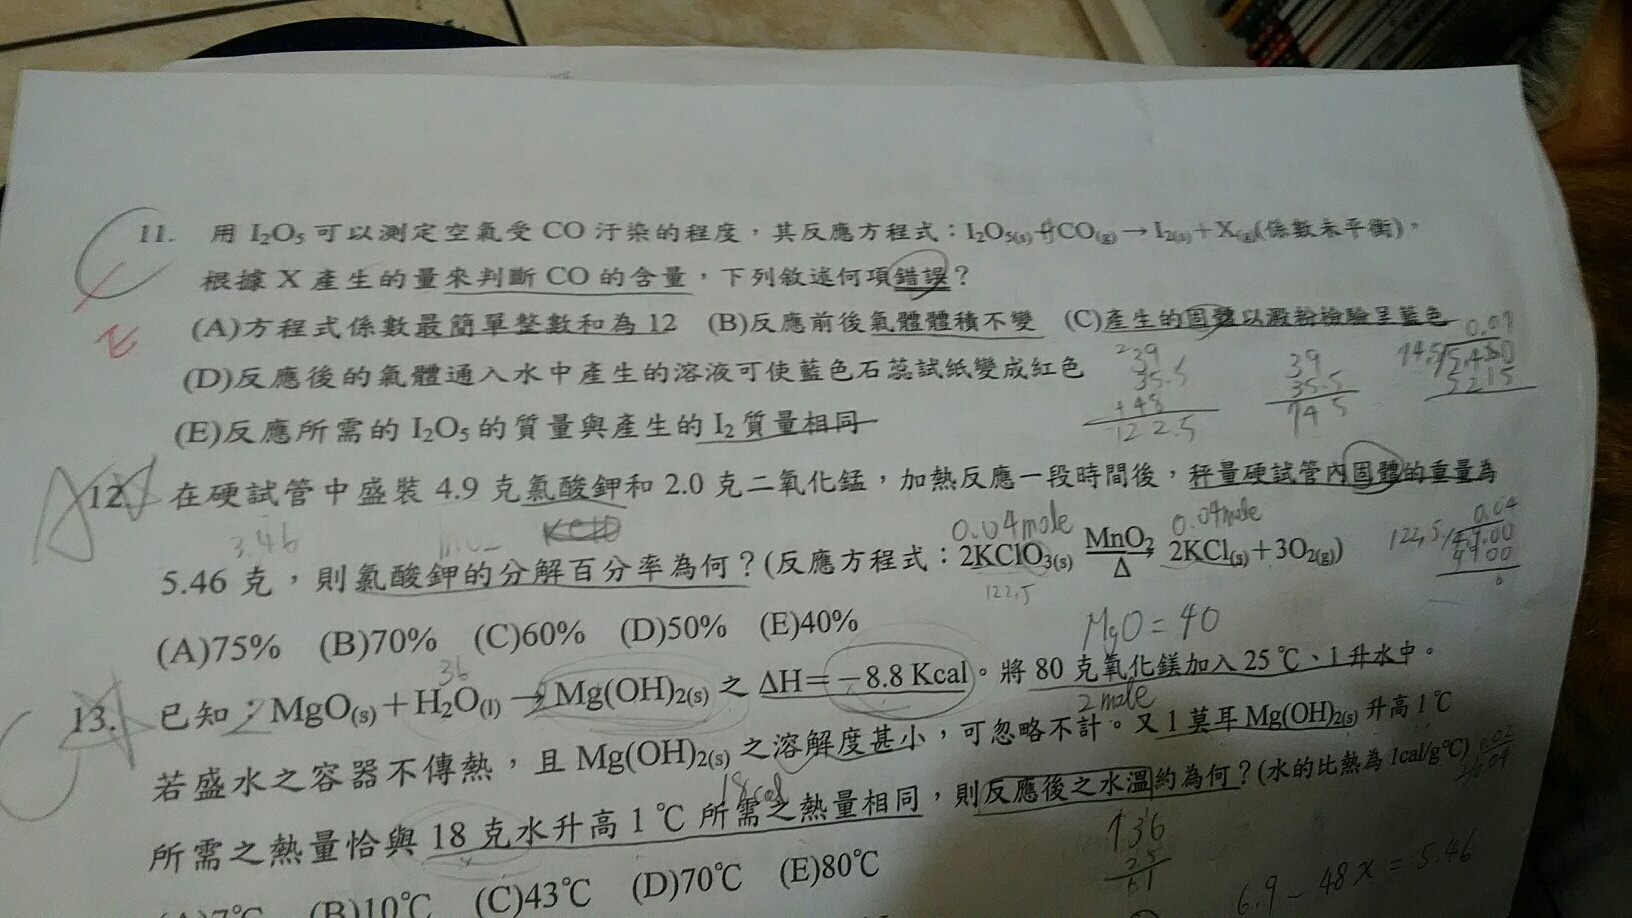 11. 用 I₂O₅ 可以測定空氣受 CO 汙染的程度，其反應方程式：I₂O₅(s)+CO(g)→I₂(s)+X(g)(係數未平衡)。
根據 X 產生的量來判斷 CO 的含量，下列敘述何項錯誤？
(A)方程式係數最簡單整數和為 12 (B)反應前後氣體體積不變 (C)產生的固體以澱粉檢驗呈藍色
(D)反應後的氣體通入水中產生的溶液可使藍色石蕊試紙變成紅色
(E)反應所需的 I₂O₅ 的質量與產生的 I₂ 質量相同
E
39
35.5
+48
122.5
39
35.5
74.5
12. 在硬試管中盛裝 4.9 克氯酸鉀和 2.0 克二氧化錳，加熱反應一段時間後，秤量硬試管內固體的重量為
3.46
0.04mole
0.04mole
5.46 克，則氯酸鉀的分解百分率為何？(反應方程式：2KClO₃(s) MnO₂ Δ 2KCl(s)+3O₂(g))
122.5
(A)75% (B)70% (C)60% (D)50% (E)40%
MgO=40
36
13. 已知：MgO(s)+H₂O(l)→Mg(OH)₂(s) 之 ΔH=−8.8 Kcal。將 80 克氧化鎂加入 25℃、1 升水中。
2 mole
若盛水之容器不傳熱，且 Mg(OH)₂(s) 之溶解度甚小，可忽略不計。又 1 莫耳 Mg(OH)₂(s) 升高 1℃
18cal
所需之熱量恰與 18 克水升高 1℃ 所需之熱量相同，則反應後之水溫約為何？(水的比熱為 1cal/g℃)
(A)7℃ (B)10℃ (C)43℃ (D)70℃ (E)80℃
6.9−48x=5.46